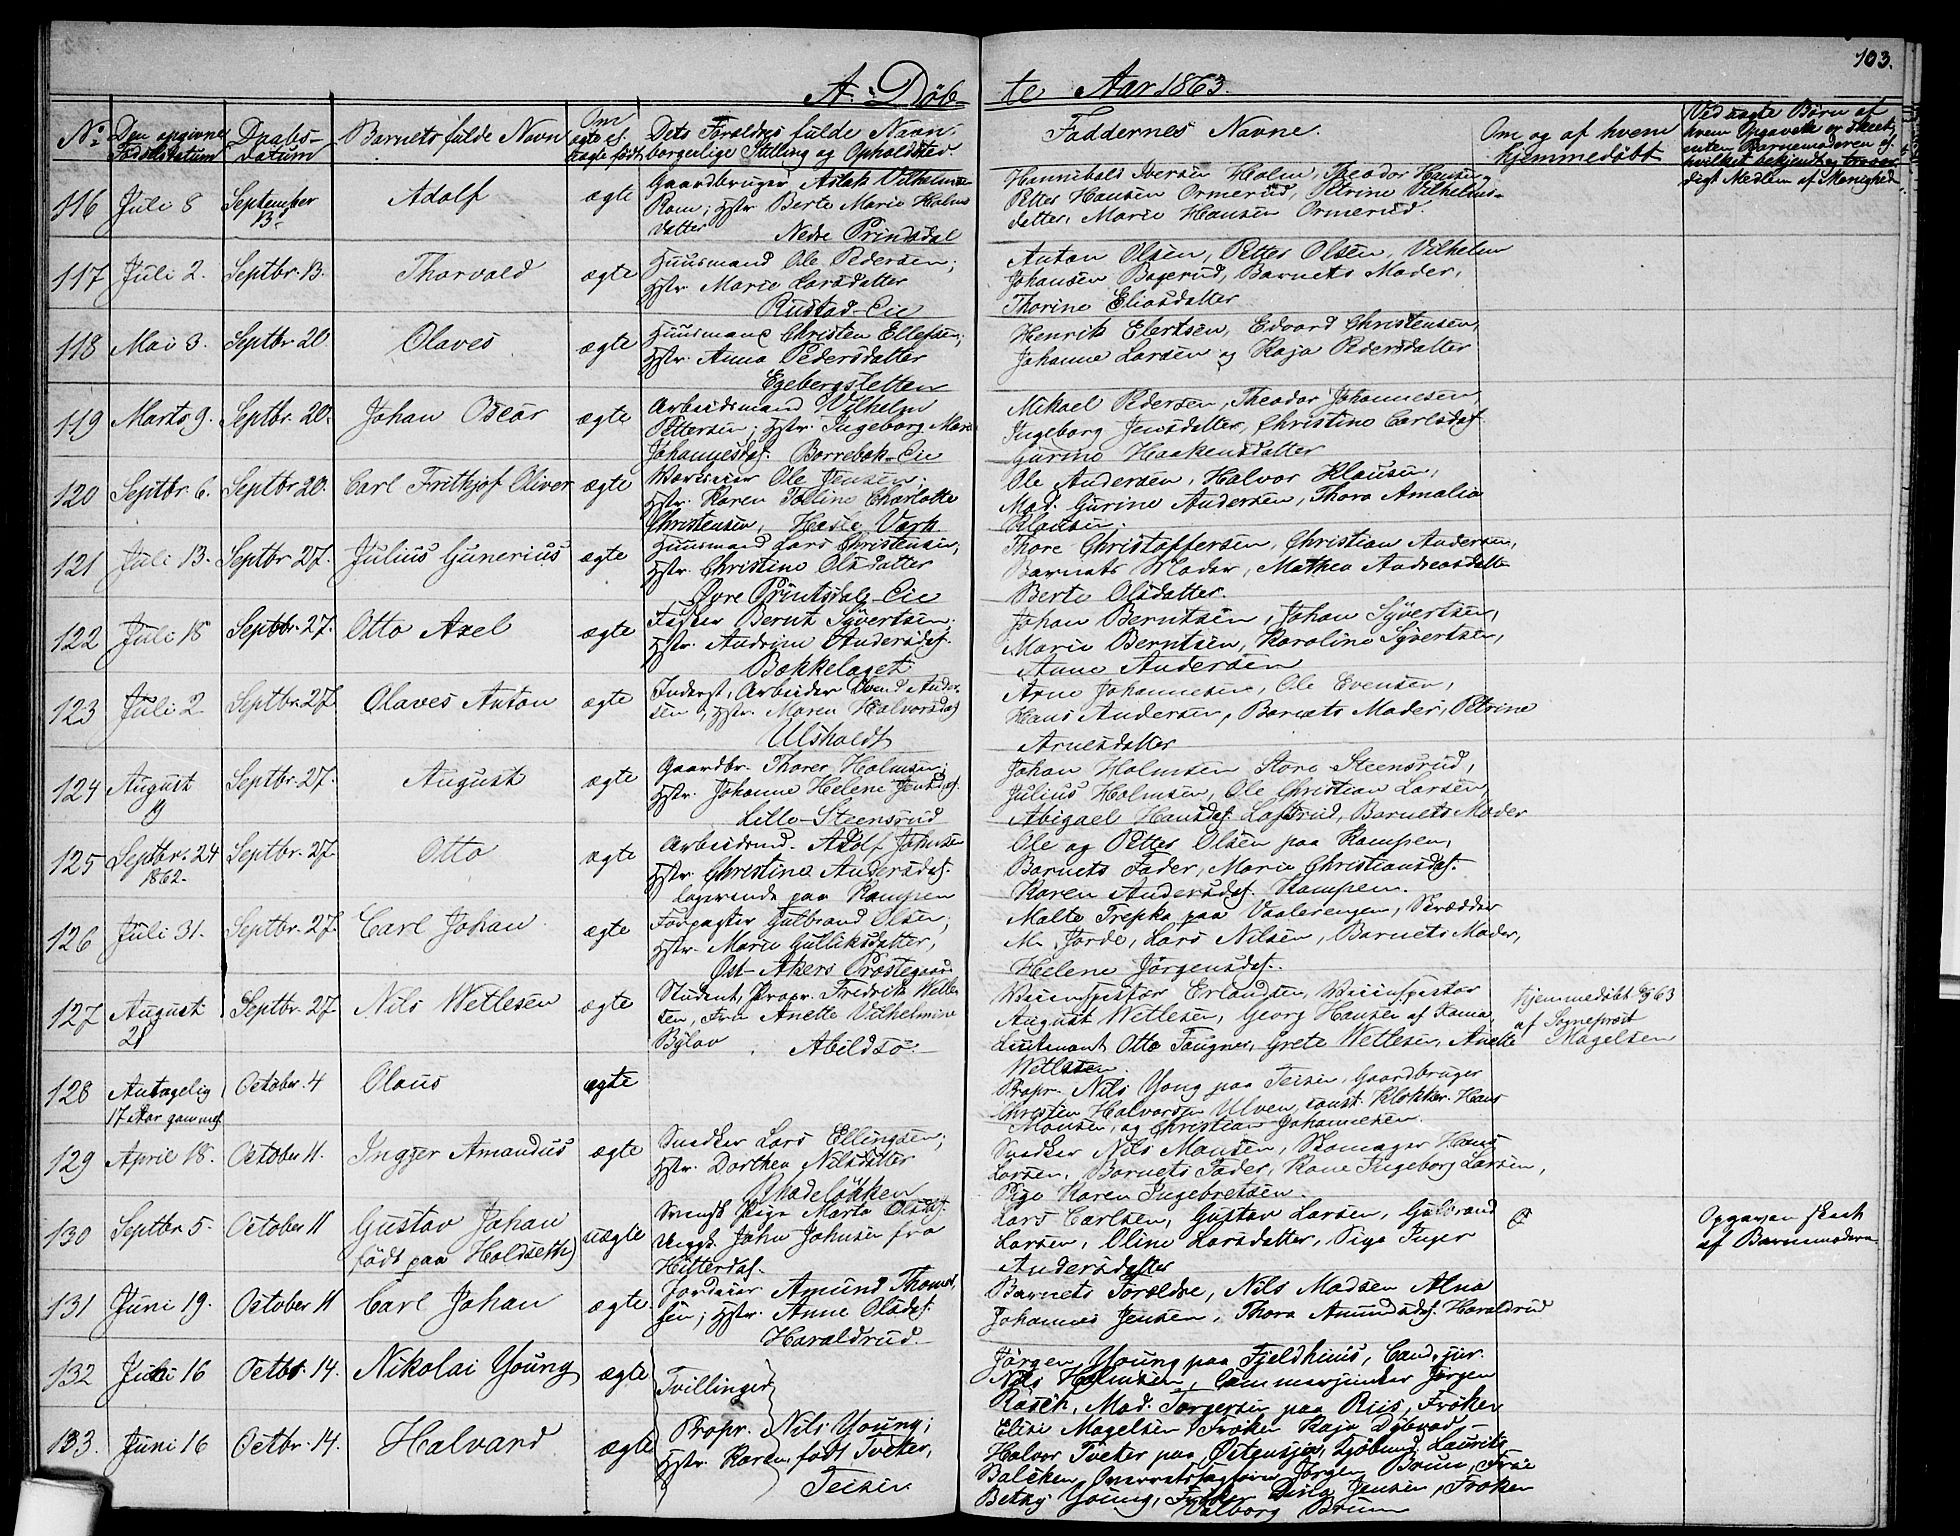 103.
A. Døb- te Aar 1863.
No. Den opgivne Fødselsdatum Daabs-datum Barnets fulde Navn Om ægte el. uægte født Dets Forældres fulde Navn, borgerlige Stilling og Opholdsted. Faddernes Navne. Om og af hvem hjemmedøbt Ved uægte Børn af hvem Opgaven er skeet, enten Barnemoderen el. hvilket bekjendt og trovær-digt Medlem af Menighed
116 Juli 8 September 13. Adolf ægte
Gaardbruger Aslak Vilhelmsen
Ram; Hstr. Berte Marie Holms
datter
Nedre Prindsdal
Hannibal Iversen Holm, Theodor Hansen,
Petter Hansen Ormerud, Petrine Vilhelms-
datter, Marie Hansen Ormerud.
117 Juli 2. Septbr. 13. Thorvald ægte
Huusmand Ole Pedersen;
Hstr. Marie Larsdatter
Rustad-Eie
Anton Olsen, Petter Olsen, Vilhelm
Johansen Bagerud, Barnets Moder,
Thorine Eliasdatter
118 Mai 3. Septbr 20 Olaves ægte
Huusmand Christen Ellefsen;
Hstr. Anna Pedersdatter
Egebergsletten
Henrik Elertsen, Edvard Christensen,
Johanne Larsen og Kaja Pedersdatter
119 Marts 9. Septbr. 20. Johan Oscar ægte
Arbeidsmand Vilhelm
Pettersen; Hstr. Ingeborg Marie
Johannesdat. Borrebæk-Eie
Mikael Pedersen, Theodor Johannesen,
Ingeborg Jensdatter, Christine Carlsdat.
Gurine Haakensdatter
120 Septbr. 6. Septbr 20. Carl Frithjof Oliver ægte
Ole Jensen;
Hstr. Karen Charlotte
Christensen, Hasle Værk
Ole Andersen, Halvor Klausen,
Mad. Gurine Andersen, Thora Amalia
Klausen.
121 Juli 13. Septbr 27. Julius Gunerius ægte
Huusmand Lars Christensen,
Hstr. Christine Olsdatter
Øvre Printsdal-Eie
Thore Christoffersen, Christian Andersen,
Barnets Moder, Mathea Andreasdatter
Berte Olsdatter.
122 Juli 18 Septbr. 27. Otto Axel ægte
Fisker Bernt Syvertsen;
Hstr. Andrine Andersdat.
Bækkelaget
Johan Berntsen, Johan Syvertsen,
Marie Berntsen, Karoline Syvertsen,
Anne Andersen
123 Juli 2 Septbr. 27. Olaves Anton ægte
Inderst, Arbeider Svend Ander-
sen, Hstr. Maren Halvorsdat
Ulsholdt
Arne Johannesen, Ole Evensen,
Hans Andersen, Barnets Moder, Petrine
Arnesdatter
124 August Septbr. 27. August ægte
Gaardbr. Thorer Holmsen;
Hstr. Johanne Helene Jensdat.
Lille-Steensrud
Johan Holmsen Store Steensrud,
Julius Holmsen, Ole Christian Larsen,
Abigael Hansdat. Lofsrud, Barnets Moder
125 Septbr. 24 1862. Septbr. 27. Otto ægte
Arbeidsmd. Adolf Johnsen
Hstr. Christine Andersdat.
logerende paa Kampen
Ole og Petter Olsen paa Kampen,
Barnets Fader, Marie Christiansdat.
Karen Andersdat. Kampen.
126 Juli 31. Septbr. 27. Carl Johan ægte
Forpagter Gulbrand Olsen;
Hstr. Marie Gulliksdatter,
Øst-Akers Præstegaard
Malte Trepka paa Vaalerengen, Skrædder
M. Jorde, Lars Nilsen, Barnets Moder,
Helene Jörgensdat.
127 August 21 Septbr. 27. Nils Wetlesen ægte
Student, Propr. Fredrik Wetle-
sen, Fru Anette Vilhelmine
Bülow
Abildsø.
Veiinspektør Erlandsen, Veiinspektør
August Wetlesen, Georg Hansen af Fama,
Lieutenant Otto Taugner, Grete Wetlesen, Anette
Wetlesen.
Hjemmedøbt 63
af Sogneprest
Magelsen
128 Antagelig 17 Aar gammel. October. 4 Olaus ægte
Propr. Nils Yong paa Teisen, Gaardbruger
Christen Halvorsen Ulven, const. Klokker Hans
Monsen, og Christian Johannesen.
129 April 18. October 11. Ingjer Amandus ægte
Snedker Lars Ellingsen;
Hstr. Dorthea Nilsdatter
Snedker Nils Monsen, Skomager Hans
Larsen, Barnets Fader, Kone Ingeborg Larsen,
Pige Karen Ingebretsen.
130 Septbr 5. October 11 Gustav Johan
født paa Holdseth) uægte
Svensk Pige Marte Olsdat.
Ungk. John Johnsen fra
Hitterdal.
Lars Carlsen, Gustav Larsen, Gulbrand
Larsen, Oline Larsdatter, Pige Inger
Andersdatter
Opgaven skeet
af Barnemoderen
131 Juni 19. October 11 Carl Johan ægte.
Jordeier Amund Thomes-
sen; Hstr. Anne Olsdat.
Haraldrud.
Barnets Forældre, Nils Madsen Alna
Johannes Jensen, Thora Amundsdat. Haraldrud
132 Juni 16 Octbr. 14. Nikolai Young ægte
Tvillinger
Jörgen Young paa Fjeldhuus, Cand. jur.
Nils Holmsen, Cammerjunker Jörgen
Rasch, Mad. Torgersen paa Riis, Frøken
Elise Magelsen, Frøken Kaja Dybvad,
133. Juni 16 Octbr. 14. Halvard ægte
Propr. Nils Young;
Hstr. Karen, født Tveter,
Teisen.
Halvor Tveter paa Østensjøn, Laurits
Balcken, Overretssagfører Jörgen Bruun, Frøken
Betsy Young, Frøken Dina Jensen, Frøken
Valborg Bruun